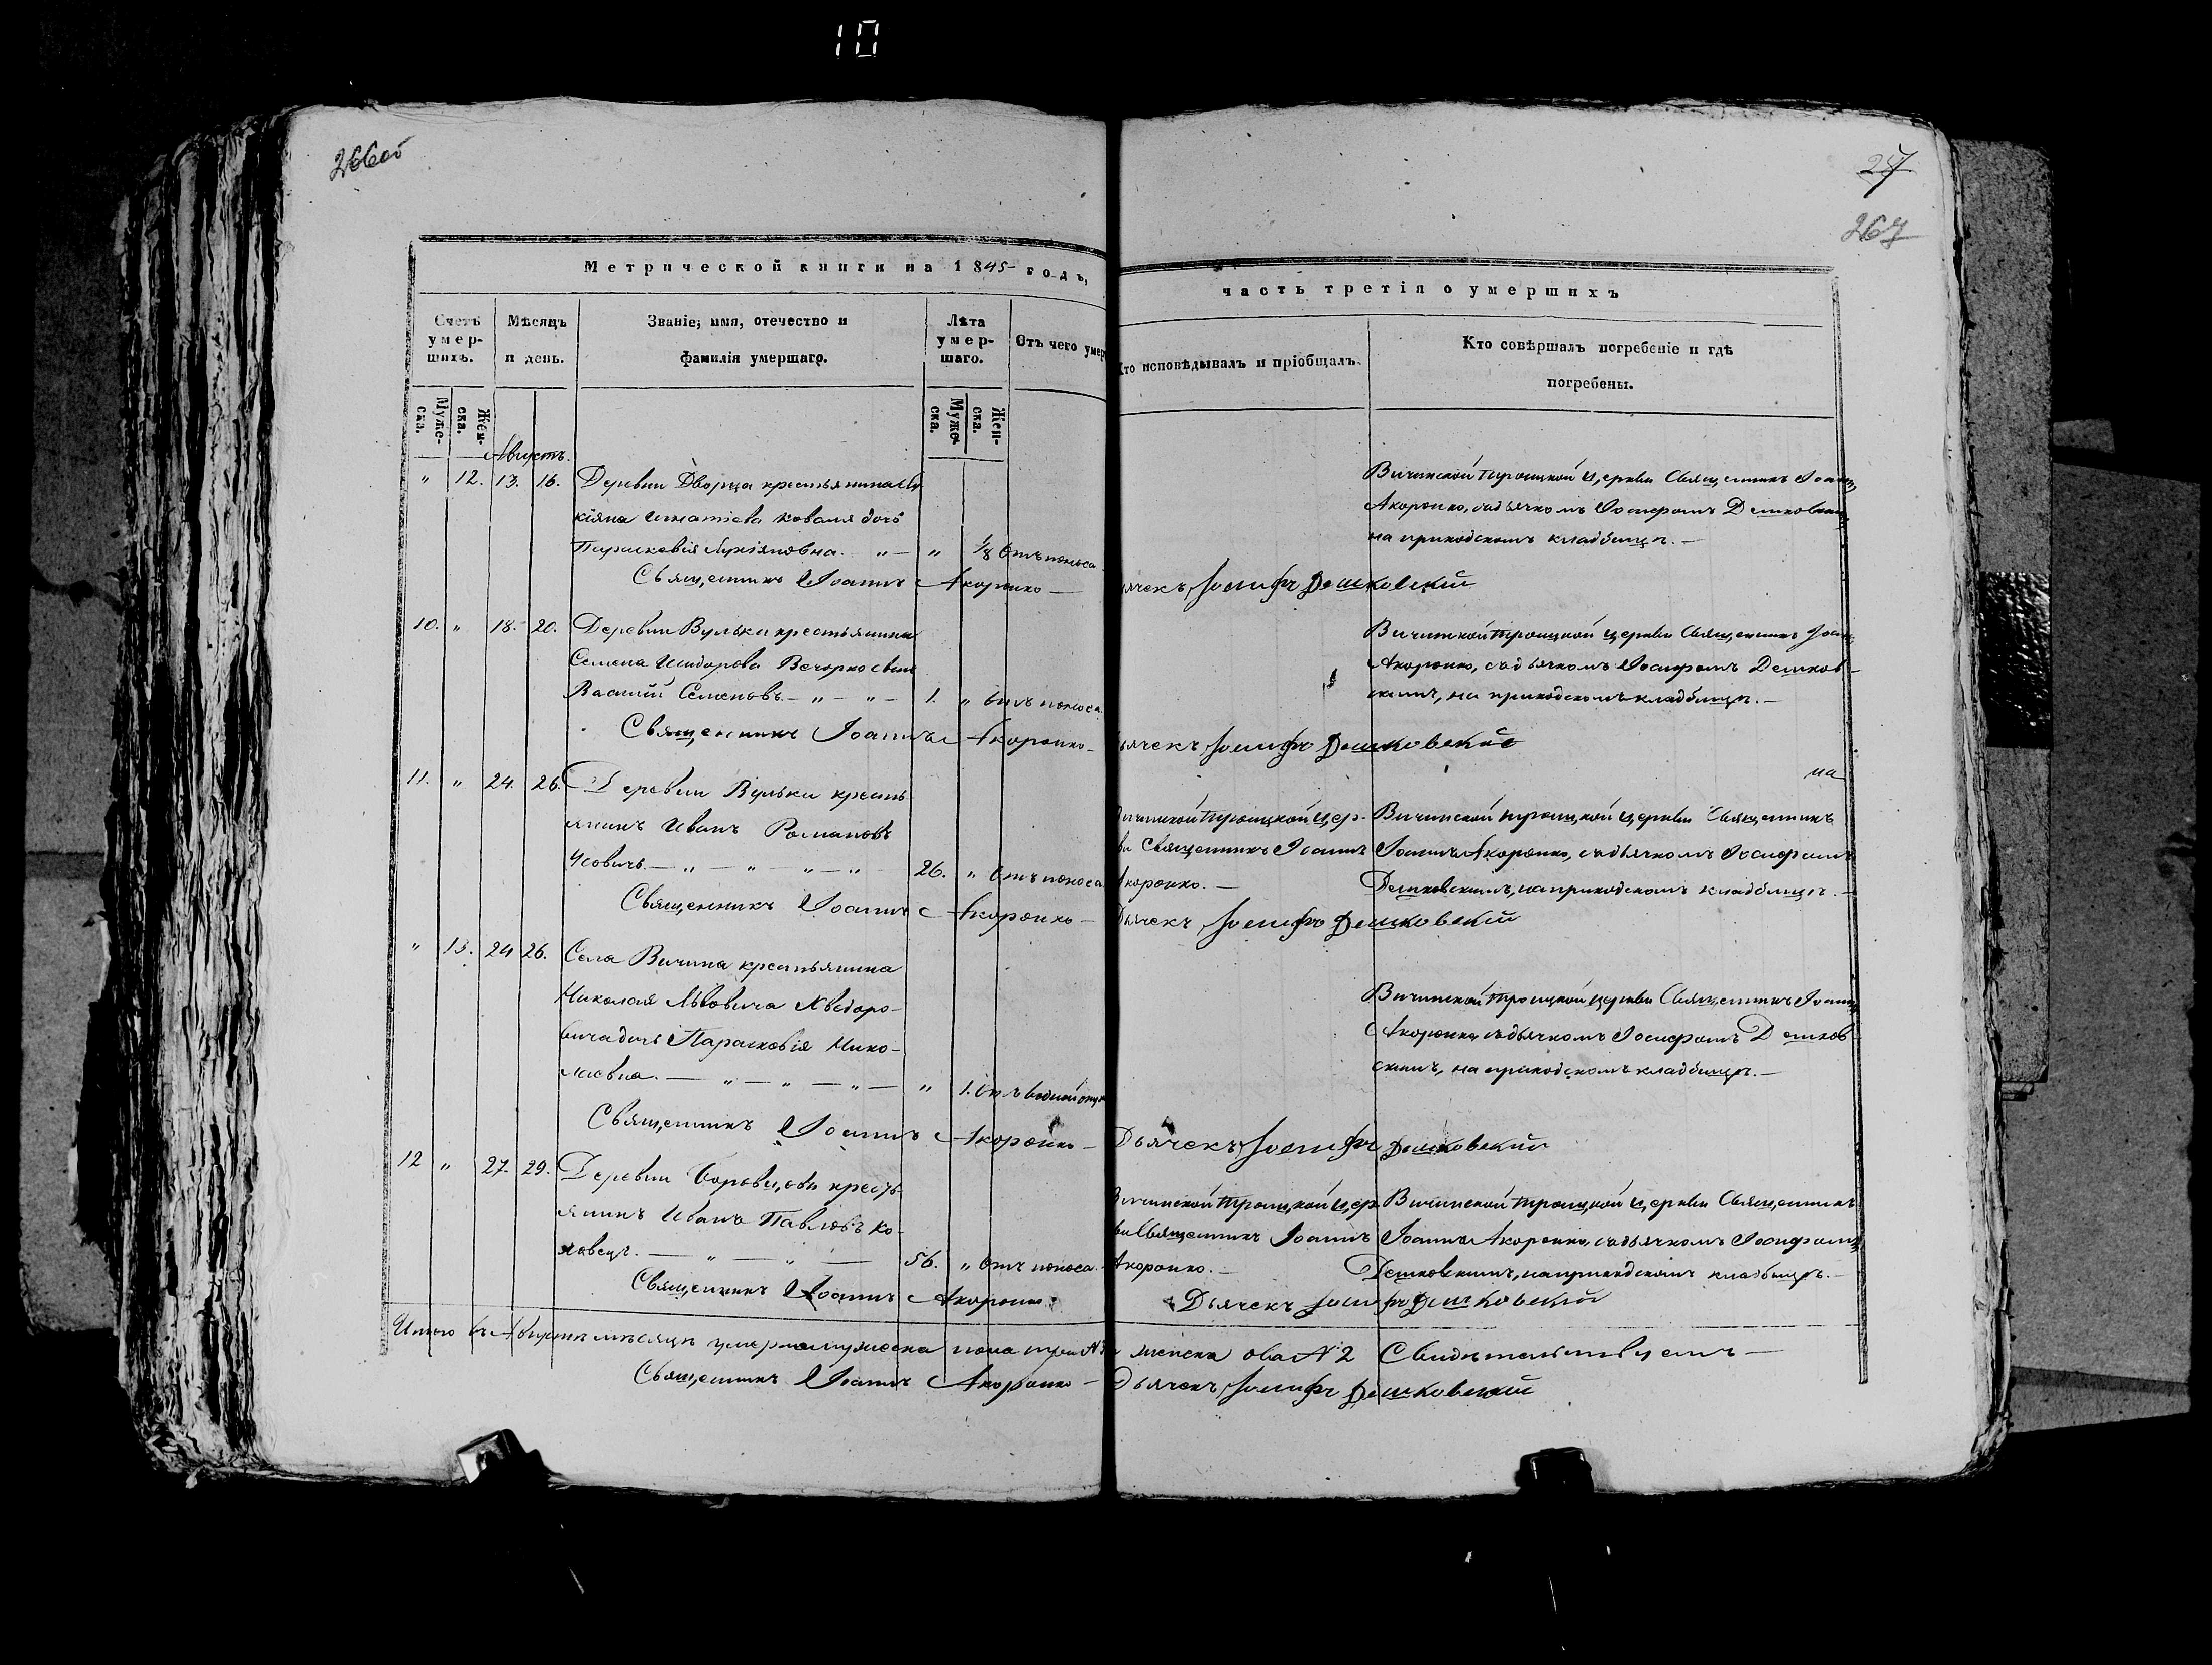 10
266об
27
267
Метрической книги на 1845 годъ,
часть третія о умершихъ
Счетъ умершихъ.
Мѣсяцъ и день.
Званіе, имя, отечество и фамилія умершаго.
Лѣта умершаго.
Отъ чего умер
Кто исповѣдывалъ и пріобщалъ.
Кто совѣршалъ погребеніе и гдѣ погребены.
Мужеска.
Женска.
Мужеска.
Женска.
Августъ.
" 12. 13. 16. Деревни Дворца крестьянина
Игнатіева Коваля дочь
Параскевія " — " 1/8 Отъ поноса
Вичинской Троицкой Церкви Священникъ Іоаннъ
Акоронко, съ дьячкомъ Іосифомъ Дешковским
на приходскомъ кладбищѣ. —
Священникъ Іоаннъ Акоронко — Дьячекъ Іосифъ Дешковскій
10. " 18. 20. Деревни Вульки крестьянина
Семена Исидорова Вечорко сынъ
Василій Семеновъ — " — " — 1. " Отъ поноса.
Вичинской Троицкой церкви Священникъ Іоан
Акоронко, съ дьячкомъ Іосифомъ Дешков-
скимъ, на приходскомъ кладбищѣ. —
Священникъ Іоаннъ Акоронко — Дьячекъ Іосифъ Дешковскій
на
11. " 24. 26. Деревни Вульки кресть-
янинъ Иванъ Романовъ
Усовичь — " — " — " — " 26. " Отъ поноса.
Вичинской Троицкой Цер-
кви Священникъ Іоаннъ
Акоронко. —
Вичинской Троицкой Церкви Священникъ
Іоаннъ Акоронко, съ дьячкомъ Іосифомъ
Дешковскимъ, на приходскомъ кладбищѣ. —
Священникъ Іоаннъ Акоронко — Дьячекъ Іосифъ Дешковскій
" 13. 24 26. Села Вичина крестьянина
Николая Львовича Хведоро-
вича дочь Параскевія Нико-
лаевна. — " — " — " — " 1. Отъ
Вичинской Троицкой Церкви Священникъ Іоаннъ
Акоронко, съ дьячкомъ Іосифомъ Дешков
скимъ, на приходскомъ кладбищѣ. —
Священникъ Іоаннъ Акоронко — Дьячекъ Іосифъ Дешковскій
12 " 27. 29. Деревни кресть-
янинъ Иванъ Павловъ Ко-
— " — " — 56. " Отъ поноса.
Вичинской Троицкой Цер
кви Священникъ Іоаннъ
Акоронко. —
Вичинской Троицкой Церкви Священникъ
Іоаннъ Акоронко, съ дьячкомъ Іосифомъ
Дешковскимъ, на приходскомъ кладбищѣ. —
Священникъ Іоаннъ Акоронко Дьячекъ Іосифъ Дешковскій
Итого въ Августѣ мѣсяцѣ умерло мужеска пола три № 3 женска два № 2 Свидѣтельствуемъ —
Священникъ Іоаннъ Акоронко — Дьячекъ Іосифъ Дешковскій